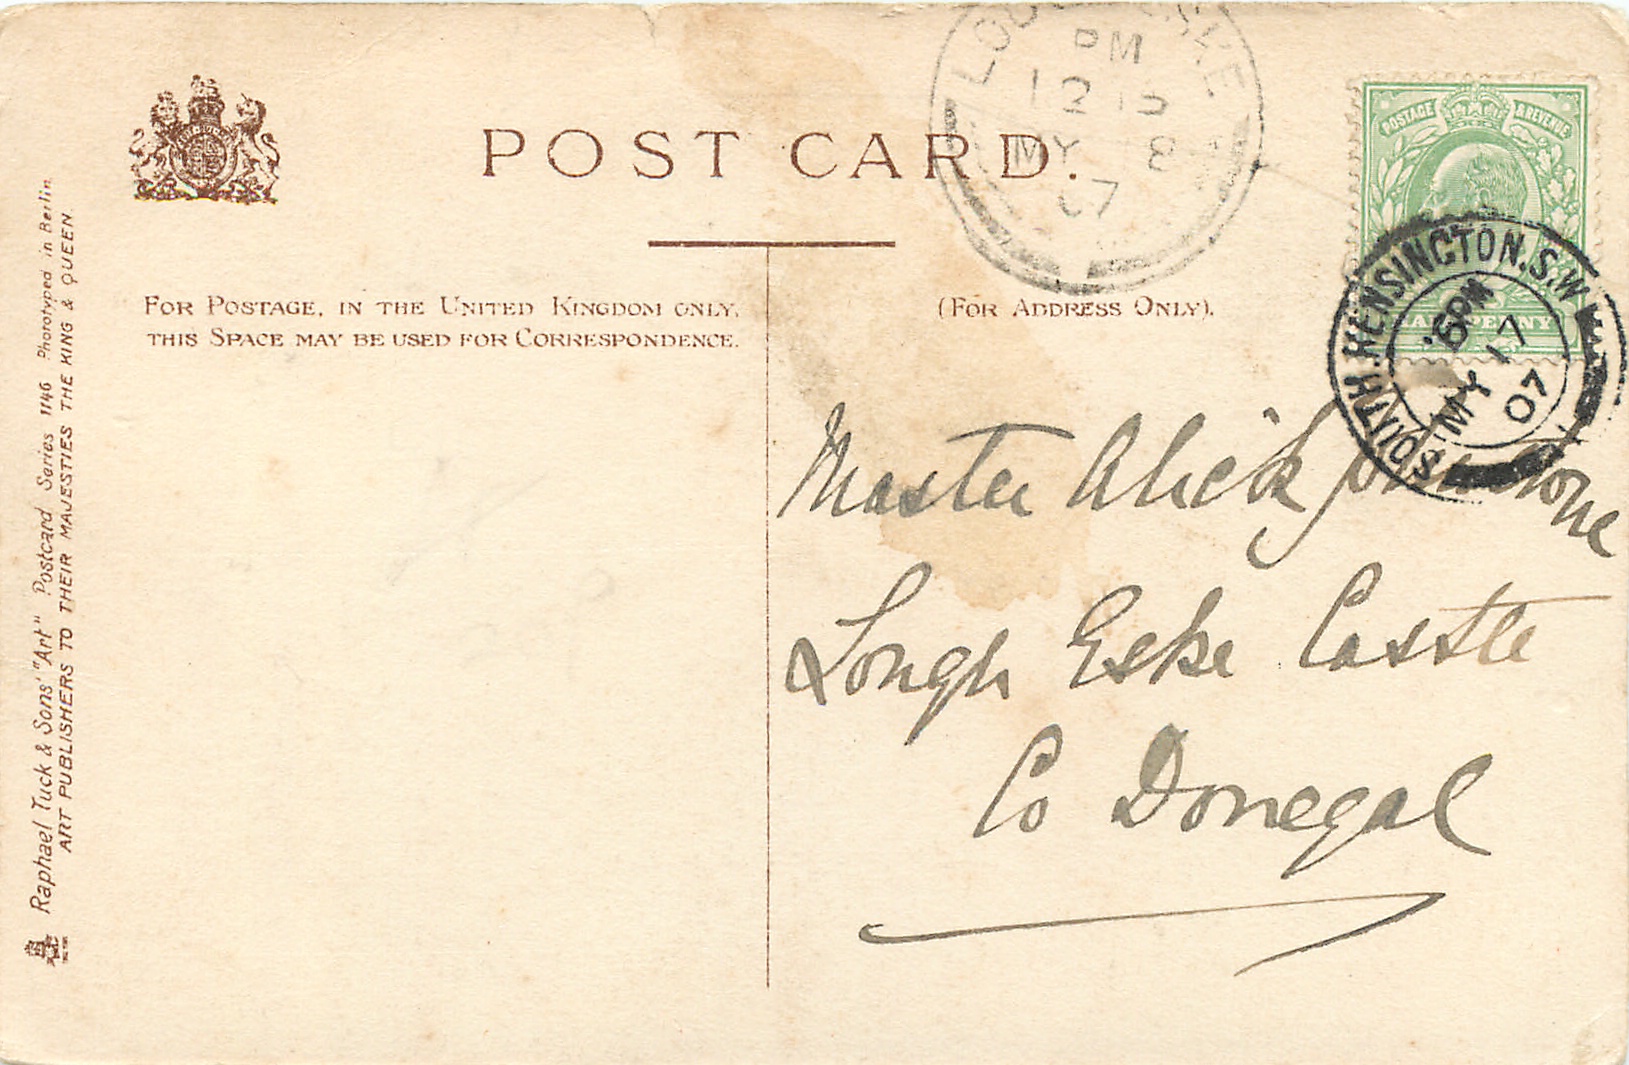 POST CARD.
FOR POSTAGE, IN THE UNITED KINGDOM ONLY,
THIS SPACE MAY BE USED FOR CORRESPONDENCE.
(FOR ADDRESS ONLY).
PM
12 15
MY 8
07
POSTAGE & REVENUE
HALFPENNY
SOUTH KENSINGTON. S.W
6 PM
MY 17
07
Master Alick Johnstone
Lough Eske Castle
Co Donegal
Raphael Tuck & Sons' "Art" Postcard Series 1146 Phototyped in Berlin
ART PUBLISHERS TO THEIR MAJESTIES THE KING & QUEEN.